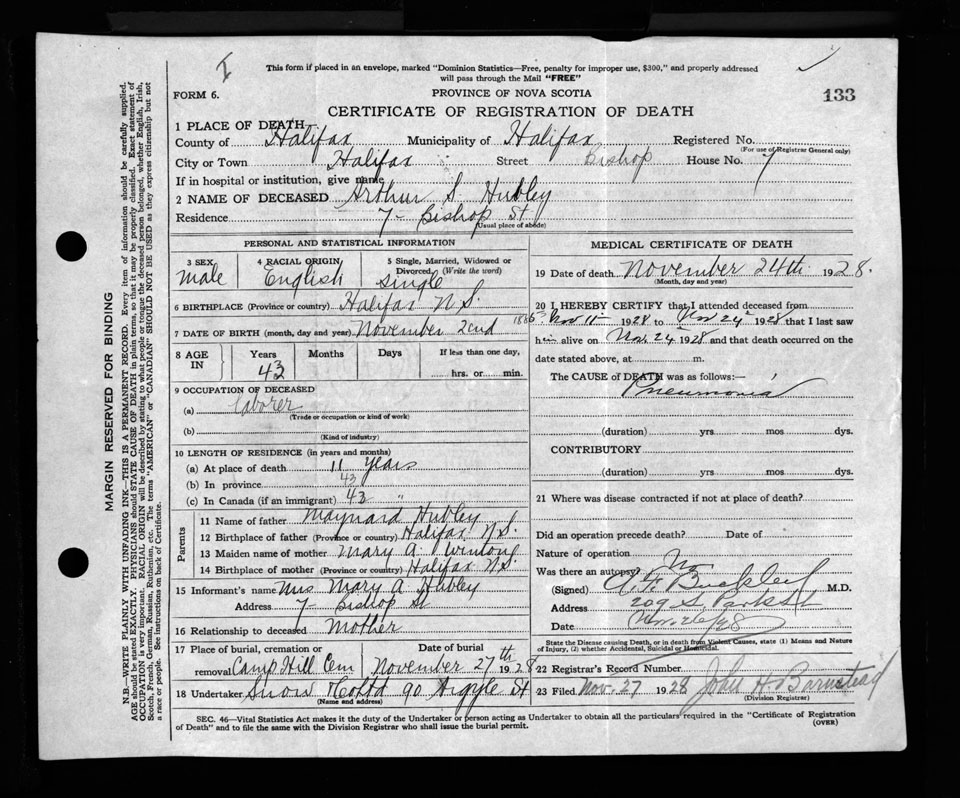 I
This form if placed in an envelope, marked "Dominion Statistics—Free, penalty for improper use, $300," and properly addressed
will pass through the Mail "FREE"
FORM 6.
PROVINCE OF NOVA SCOTIA
133
CERTIFICATE OF REGISTRATION OF DEATH
1 PLACE OF DEATH
County of Halifax Municipality of Halifax Registered No.
(For use of Registrar General only)
City or Town Halifax Street Bishop House No. 7
If in hospital or institution, give name
2 NAME OF DECEASED Arthur S Hubley
Residence 7- Bishop St
(Usual place of abode)
PERSONAL AND STATISTICAL INFORMATION
3 SEX male
4 RACIAL ORIGIN English
5 Single, Married, Widowed or Divorced (Write the word) single
6 BIRTHPLACE (Province or country) Halifax N S.
7 DATE OF BIRTH (month, day and year) November 22nd 1885
8 AGE IN Years Months Days If less than one day,
43 hrs. or min.
9 OCCUPATION OF DECEASED
(a) laborer
(Trade or occupation or kind of work)
(b)
(Kind of industry)
10 LENGTH OF RESIDENCE (in years and months)
(a) At place of death 11 years
(b) In province 43
(c) In Canada (if an immigrant) 43 "
Parents
11 Name of father Maynard Hubley
12 Birthplace of father (Province or country) Halifax N S.
13 Maiden name of mother Mary A.
14 Birthplace of mother (Province or country) Halifax N.S.
15 Informant's name Mrs Mary A Hubley
Address 7- Bishop St
16 Relationship to deceased mother
17 Place of burial, cremation or removal Camp Hill Cem
Date of burial November 27th 1928
18 Undertaker Snow & Co Ltd 90 Argyle St
(Name and address)
MEDICAL CERTIFICATE OF DEATH
19 Date of death November 24th 1928.
(Month, day and year)
20 I HEREBY CERTIFY that I attended deceased from
Nov 11 1928 to Nov 24 1928 that I last saw
him alive on Nov. 24 1928 and that death occurred on the
date stated above, at m.
The CAUSE of DEATH was as follows:—
Pneumonia
(duration) yrs mos dys.
CONTRIBUTORY
(duration) yrs. mos dys.
21 Where was disease contracted if not at place of death?
Did an operation precede death? Date of
Nature of operation
Was there an autopsy? No
(Signed) Buckley M.D.
Address 209 S. Park St
Date Nov 26/28
State the Disease causing Death, or in death from Violent Causes, state (1) Means and Nature
of Injury, (2) whether Accidental, Suicidal or Homicidal.
22 Registrar's Record Number
23 Filed Nov. 27 1928 John H Barnstead
(Division Registrar)
SEC. 46—Vital Statistics Act makes it the duty of the Undertaker or person acting as Undertaker to obtain all the particulars required in the "Certificate of Registration
of Death" and to file the same with the Division Registrar who shall issue the burial permit.
(OVER)
MARGIN RESERVED FOR BINDING
N.B.—WRITE PLAINLY WITH UNFADING INK—THIS IS A PERMANENT RECORD. Every item of information should be carefully supplied.
AGE should be stated EXACTLY. PHYSICIANS should STATE CAUSE OF DEATH in plain terms, so that it may be properly classified. Exact statement of
OCCUPATION is very important. RACIAL ORIGIN will be described by stating to what people or tongue the deceased person belonged, whether English, Irish,
Scotch, French, German, Russian, Ruthenian, etc. The terms "AMERICAN" or "CANADIAN" SHOULD NOT BE USED as they express citizenship but not
a race or people. See instructions on back of Certificate.